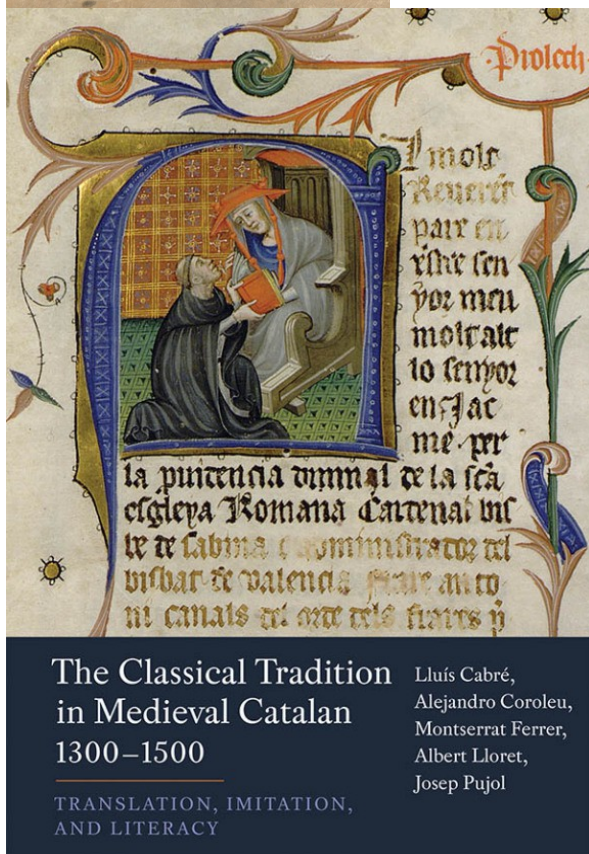 Prolech
l molt
Reueret
pare en
sen
yor meu
molt alt
lo senyor
en Jac
me per
la diuinal de la scã
esgleya Romana Cardenal bis
be de sabina e administrador del
bisbat de valencia frare anto
ni canals del orde dels frares p
The Classical Tradition
in Medieval Catalan
1300–1500
TRANSLATION, IMITATION,
AND LITERACY
Lluís Cabré,
Alejandro Coroleu,
Montserrat Ferrer,
Albert Lloret,
Josep Pujol